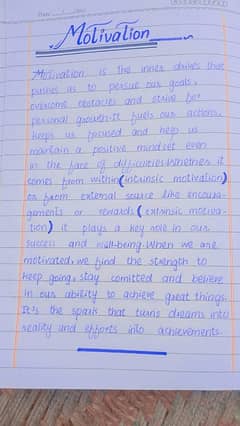 Motivation
Motivation is the inner drives that
pushes us to persue our goals,
overcome obstacles and strive for
personal growth. It fuels our actions,
keeps us focused and help us
maintain a positive mindset even
in the face of difficulties. Whether it
comes from within (intrinsic motivation)
or from external source like encoura-
gements or rewards (extrinsic motiva-
tion) it plays a key role in our
success and well-being. When we are
motivated, we find the strength to
keep going, stay comitted and believe
in our ability to achieve great things.
It's the spark that turns dreams into
reality and efforts into achievements.